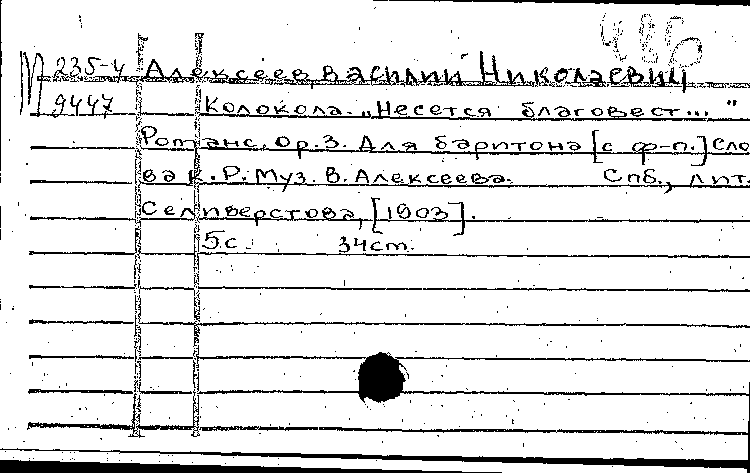 М 235-4 Алексеев, Василий Николаевич
9447 Колокола. „Несется благовест..."
Романс. Ор.3. Для баритона [с ф-п.] Сло
ва К.Р. Муз. В. Алексеева. Спб., лит.
Селиверстова, [1903].
5с. 34ст.